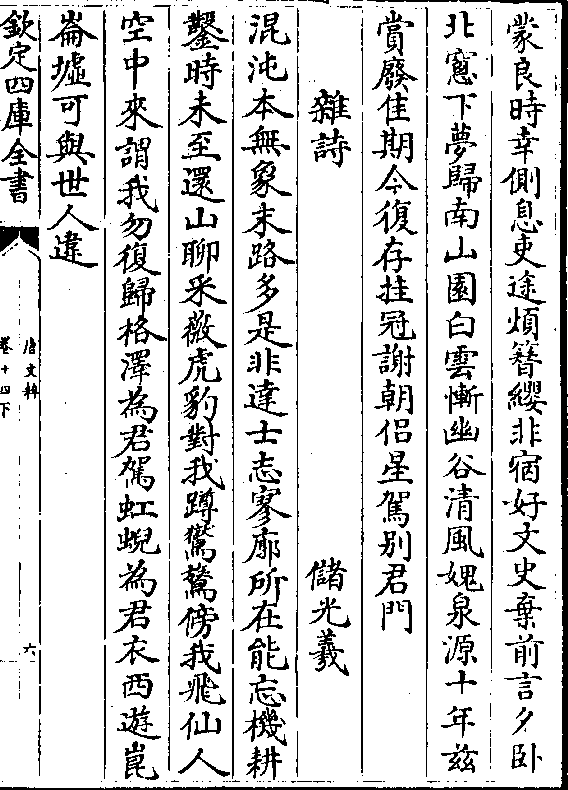 蒙良時幸側息吏途煩簪纓非宿好文史棄前言夕卧
北窻下夢歸南山園白雲慚幽谷清風媿泉源十年茲
賞廢佳期今復存挂冠謝朝侣星駕别君門
雜詩 儲光羲
混沌本無象末路多是非達士志寥廓所在能忘機耕
鑿時未至還山聊采薇虎豹對我蹲鸑鷟傍我飛仙人
空中來謂我勿復歸格澤為君駕虹蜺為君衣西遊崑
崙墟可與世人違
欽定四庫全書
唐文粹
卷十四下
六